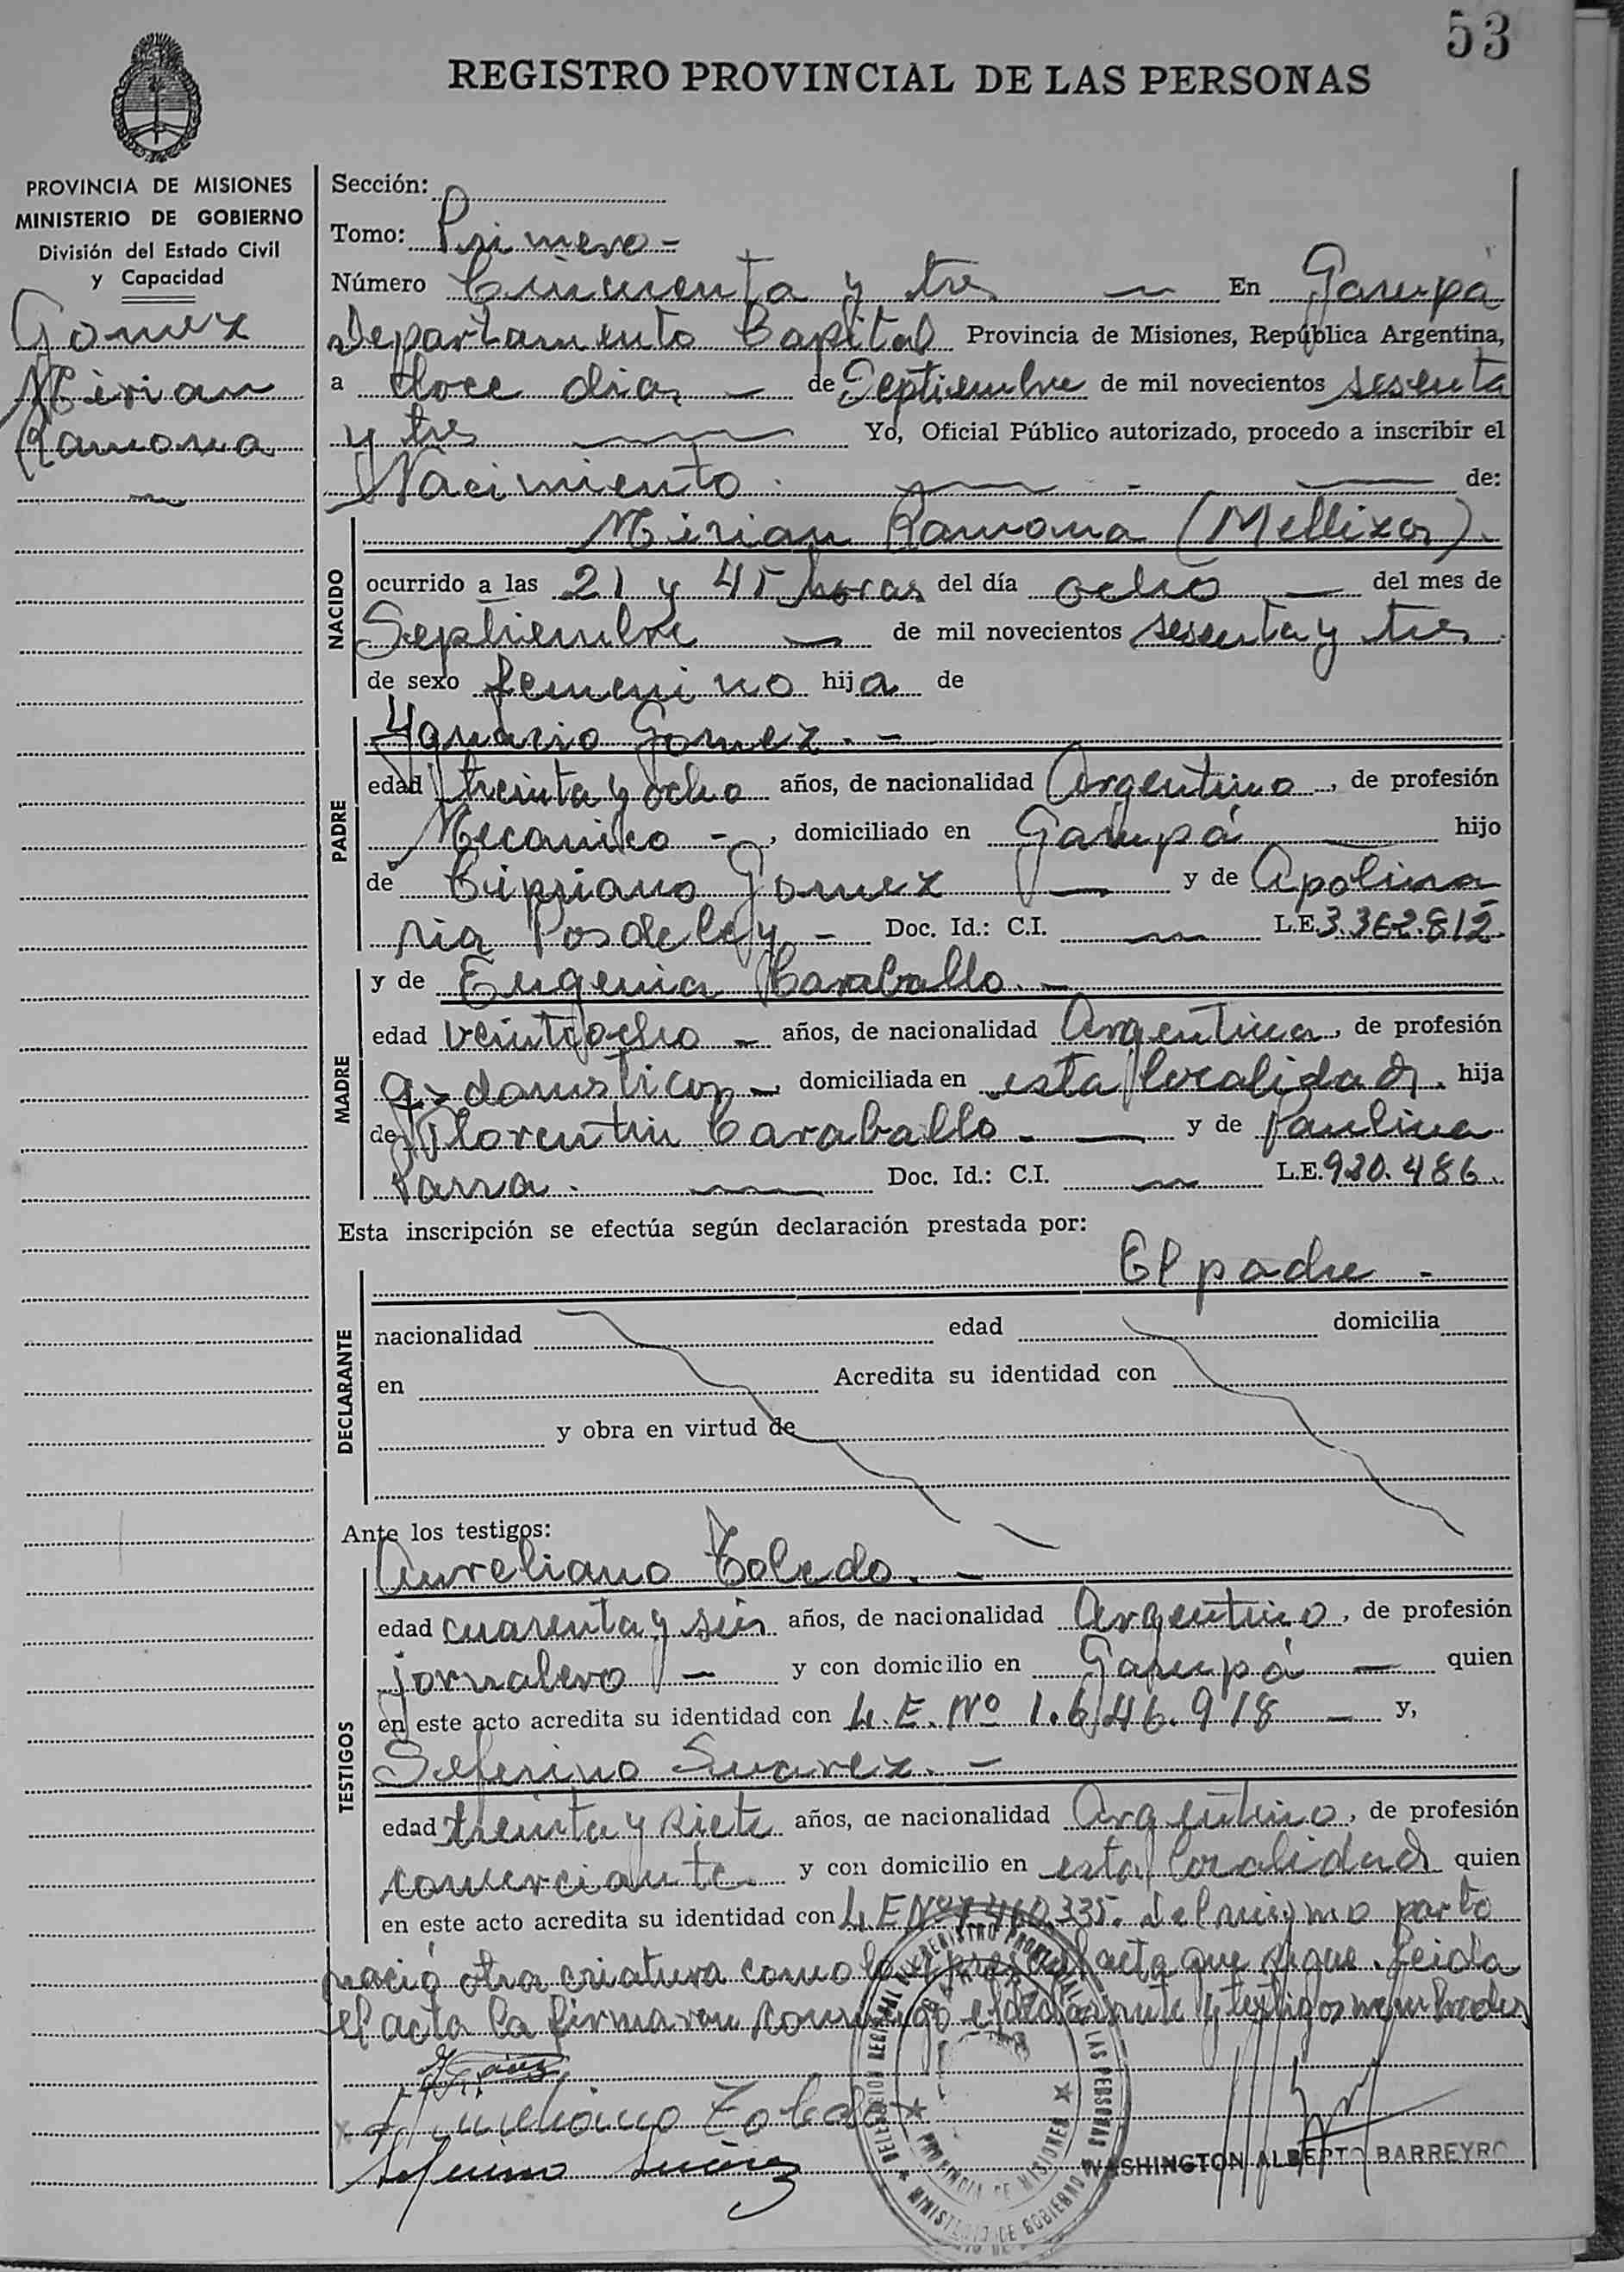 53
REGISTRO PROVINCIAL DE LAS PERSONAS
PROVINCIA DE MISIONES
MINISTERIO DE GOBIERNO
División del Estado Civil
y Capacidad
Gomez
Mirian
Ramona
Sección:
Tomo: Primero -
Número Cincuenta y tres En Garupá
Departamento Capital Provincia de Misiones, República Argentina,
a doce dias de Septiembre de mil novecientos sesenta
y tres Yo, Oficial Público autorizado, procedo a inscribir el
Nacimiento de:
NACIDO
Mirian Ramona (Melliza).
ocurrido a las 21 y 45 horas del día ocho del mes de
Septiembre de mil novecientos sesenta y tres
de sexo femenino hija de
PADRE
Ygnacio Gomez. -
edad treinta y ocho años, de nacionalidad Argentino, de profesión
Mecanico -, domiciliado en Garupá hijo
de Cipriano Gomez y de Apolina
ria Posdeley - Doc. Id.: C.I. L.E. 3.362.812.
MADRE
y de Eugenia Caraballo. -
edad veintiocho - años, de nacionalidad Argentina, de profesión
q. domesticos -, domiciliada en esta localidad, hija
de Florentin Caraballo - y de Paulina
Parra. Doc. Id.: C.I. L.E. 930.486.
Esta inscripción se efectúa según declaración prestada por:
El padre -
DECLARANTE
nacionalidad edad domicilia
en Acredita su identidad con
y obra en virtud de
Ante los testigos:
TESTIGOS
Aureliano Toledo. -
edad cuarenta y seis años, de nacionalidad Argentino, de profesión
jornalero - y con domicilio en Garupá - quien
en este acto acredita su identidad con L.E. Nº 1.646.918 - y,
Seferino Suarez. -
edad treinta y siete años, de nacionalidad Argentino, de profesión
comerciante y con domicilio en esta localidad quien
en este acto acredita su identidad con L.E Nº 335. Del mismo parto
nació otra criatura como lo acta que sigue. Leida
el acta la firmaron conmigo el declarante y testigos nombrados
Aureliano Toledo
Seferino Suárez
DELEGACION REGIONAL DEL REGISTRO PROVINCIAL DE LAS PERSONAS
PROVINCIA DE MISIONES
MINISTERIO DE GOBIERNO
WASHINGTON ALBERTO BARREYRO